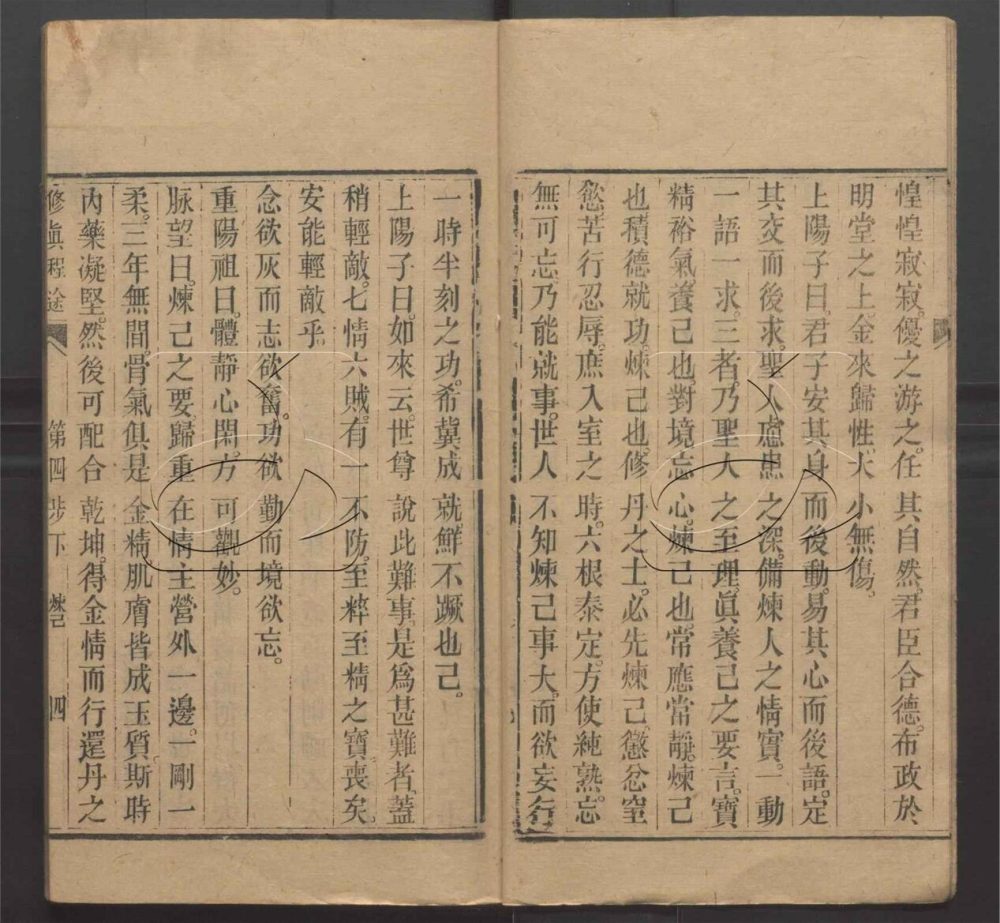 惶惶寂寂。優之游之。任其自然。君臣合德。布政於
明堂之上。金來歸性。大小無傷。
上陽子曰。君子安其身而後動。易其心而後語。定
其交而後求。聖人慮患之深。備煉人之情實。一動
一語一求。三者。乃聖人之至理。眞養己之要言。寶
精裕氣。養己也。對境忘心。煉己也。常應常靜。煉己
也。積德就功。煉己也。修丹之士。必先煉己。懲忿窒
慾。苦行忍辱。庶入室之時。六根泰定。方使純熟。忘
無可忘。乃能就事。世人不知煉己事大。而欲妄行
一時半刻之功。希冀成就。鮮不蹶也已。
上陽子曰。如來云。世尊說此難事。是爲甚難者。蓋
稍輕敵。七情六賊。有一不防。至粹至精之寶喪矣。
安能輕敵乎。
念欲灰而志欲奮。功欲勤而境欲忘。
重陽祖曰。體靜心閑。方可觀妙。
脉望曰。煉己之要。歸重在情主營外一邊。一剛一
柔。三年無間。骨氣俱是金精。肌膚皆成玉質。斯時
內藥凝堅。然後可配合乾坤。得金情而行還丹之
修眞程途 第四步下 煉己 四